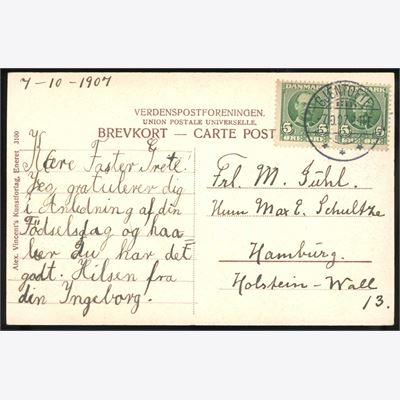 7-10-1907
VERDENSPOSTFORENINGEN.
UNION POSTALE UNIVERSELLE.
BREVKORT — CARTE POST
Alex. Vincent's Kunstforlag, Eneret 3100
DANMARK
5 5
ØRE ØRE
DANMARK
5
GENTOFTE
Kære Faster Grete!
Jeg gratulerer dig
i Anledning af din
Födselsdag og haa
ber du har det
godt. Hilsen fra
din Ingeborg.
Frl. M. Juhl.
Max E. Schultze
Hamburg.
Holstein-Wall
13.